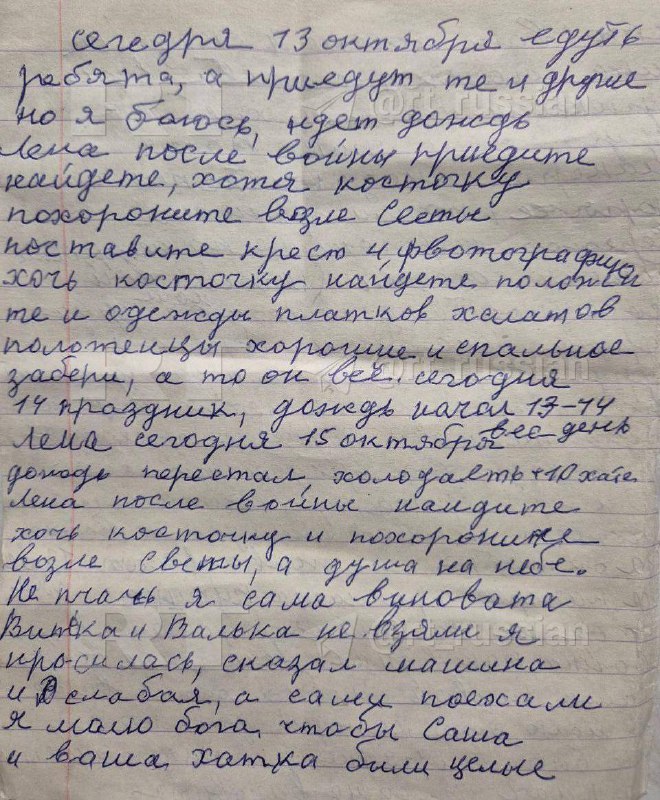 сегедря 13 октября едуть
ребята, а приедут те и другие
но я боюсь, идет дождь
Лена после войны приедите
найдете, хотя косточку
похороните возле Светы
поставите крест и фвотографию
хочь косточку найдете положи
те и одежды платков халатов
полотенцы хорошие и спальное
забери, а то он всё. сегодня
14 праздник, дождь начал 13-14
Лена сегодня 15 октября вес день
дождь перестал, холодаеть +10 хате
Лена после войны найдите
хочь косточку и похороните
возле Светы, а душа на небе.
Не плачь я сама виновата
Витька и Валька не взяли я
просилась, сказал машина
и слабая, а сами поехали
я малю бога чтобы Саша
и ваша хатка били целые
@rt_russian
@rt_russian
@rt_russian
RT
RT